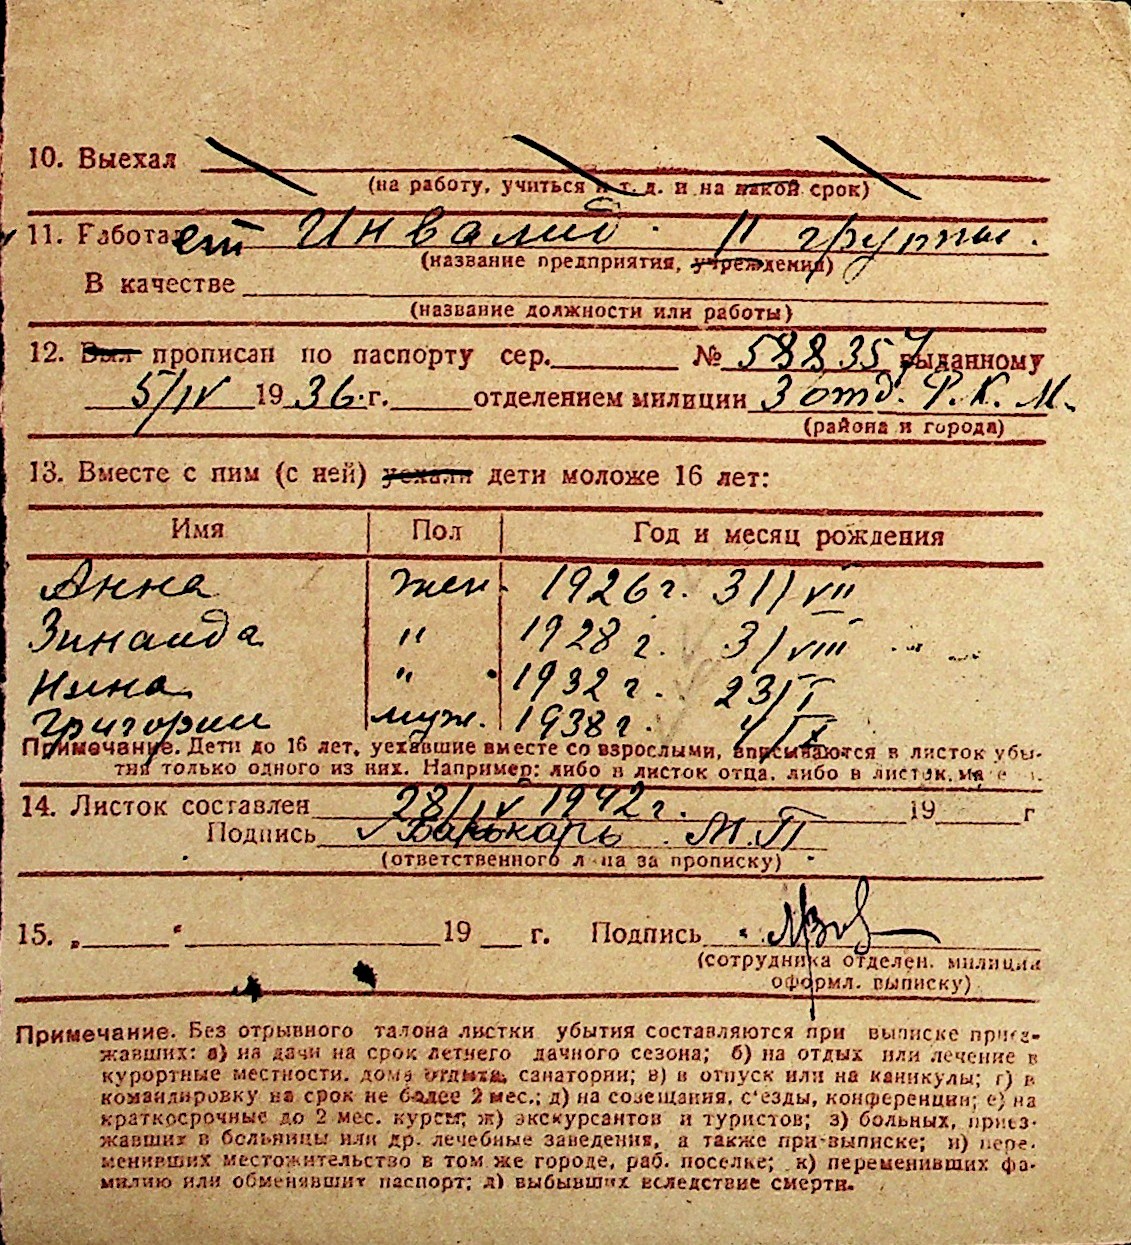 10. Выехал
(на работу, учиться и т. д. и на какой срок)
11. Работает Инвалид II группы.
(название предприятия, учреждения)
В качестве
(название должности или работы)
12. Был прописан по паспорту сер. № 588357 выданному
5/IV 1936 г. отделением милиции 3 отд. Р.К.М.
(района и города)
13. Вместе с ним (с ней) уехали дети моложе 16 лет:
Имя Пол Год и месяц рождения
Анна жен. 1926 г. 31/VII
Зинаида " 1928 г. 3/VIII
Нина " 1932 г. 23/I
Григорий муж. 1938 г.
Примечание. Дети до 16 лет, уехавшие вместе со взрослыми, вписываются в листок убы-
тия только одного из них. Например: либо в листок отца, либо в листок
14. Листок составлен 28/IV 1942 г. 19 г
Подпись М.П
(ответственного лица за прописку)
15. „ “ 19 г. Подпись
(сотрудника отделен. милиции
оформл. выписку)
Примечание. Без отрывного талона листки убытия составляются при выписке приез-
жавших: а) на дачи на срок летнего дачного сезона; б) на отдых или лечение в
курортные местности, дома отдыха, санатории; в) в отпуск или на каникулы; г) в
командировку на срок не более 2 мес.; д) на совещания, с'езды, конференции; е) на
краткосрочные до 2 мес. курсы; ж) экскурсантов и туристов; з) больных, приез-
жавших в больницы или др. лечебные заведения, а также при выписке; и) пере-
менивших местожительство в том же городе, раб. поселке; к) переменивших фа-
милию или обменявших паспорт; л) выбывших вследствие смерти.